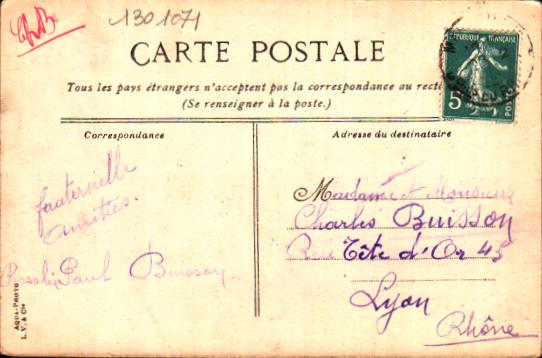 1301071
CARTE POSTALE
Tous les pays étrangers n'acceptent pas la correspondance au recto
(Se renseigner à la poste.)
REPUBLIQUE FRANÇAISE
5
POSTES
Correspondance
fraternelle
amitiés.
Paul Buisson
AQUA-PHOTO
L. V. & Cie
Adresse du destinataire
Madame et Monsieur
Charles Buisson
Rue Tête d'Or 45
Lyon
Rhône